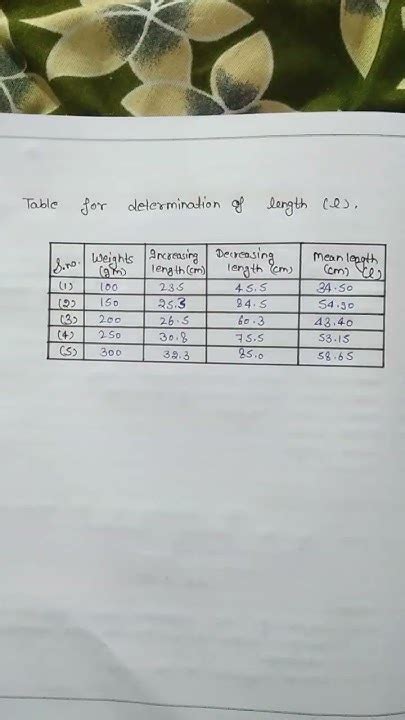 Table for determination of length (l).
S.no. Weights (gm) Increasing length (cm) Decreasing length (cm) Mean length (cm) (l)
(1) 100 23.5 45.5 34.50
(2) 150 25.3 84.5 54.90
(3) 200 26.5 60.3 43.40
(4) 250 30.8 75.5 53.15
(5) 300 32.3 85.0 58.65